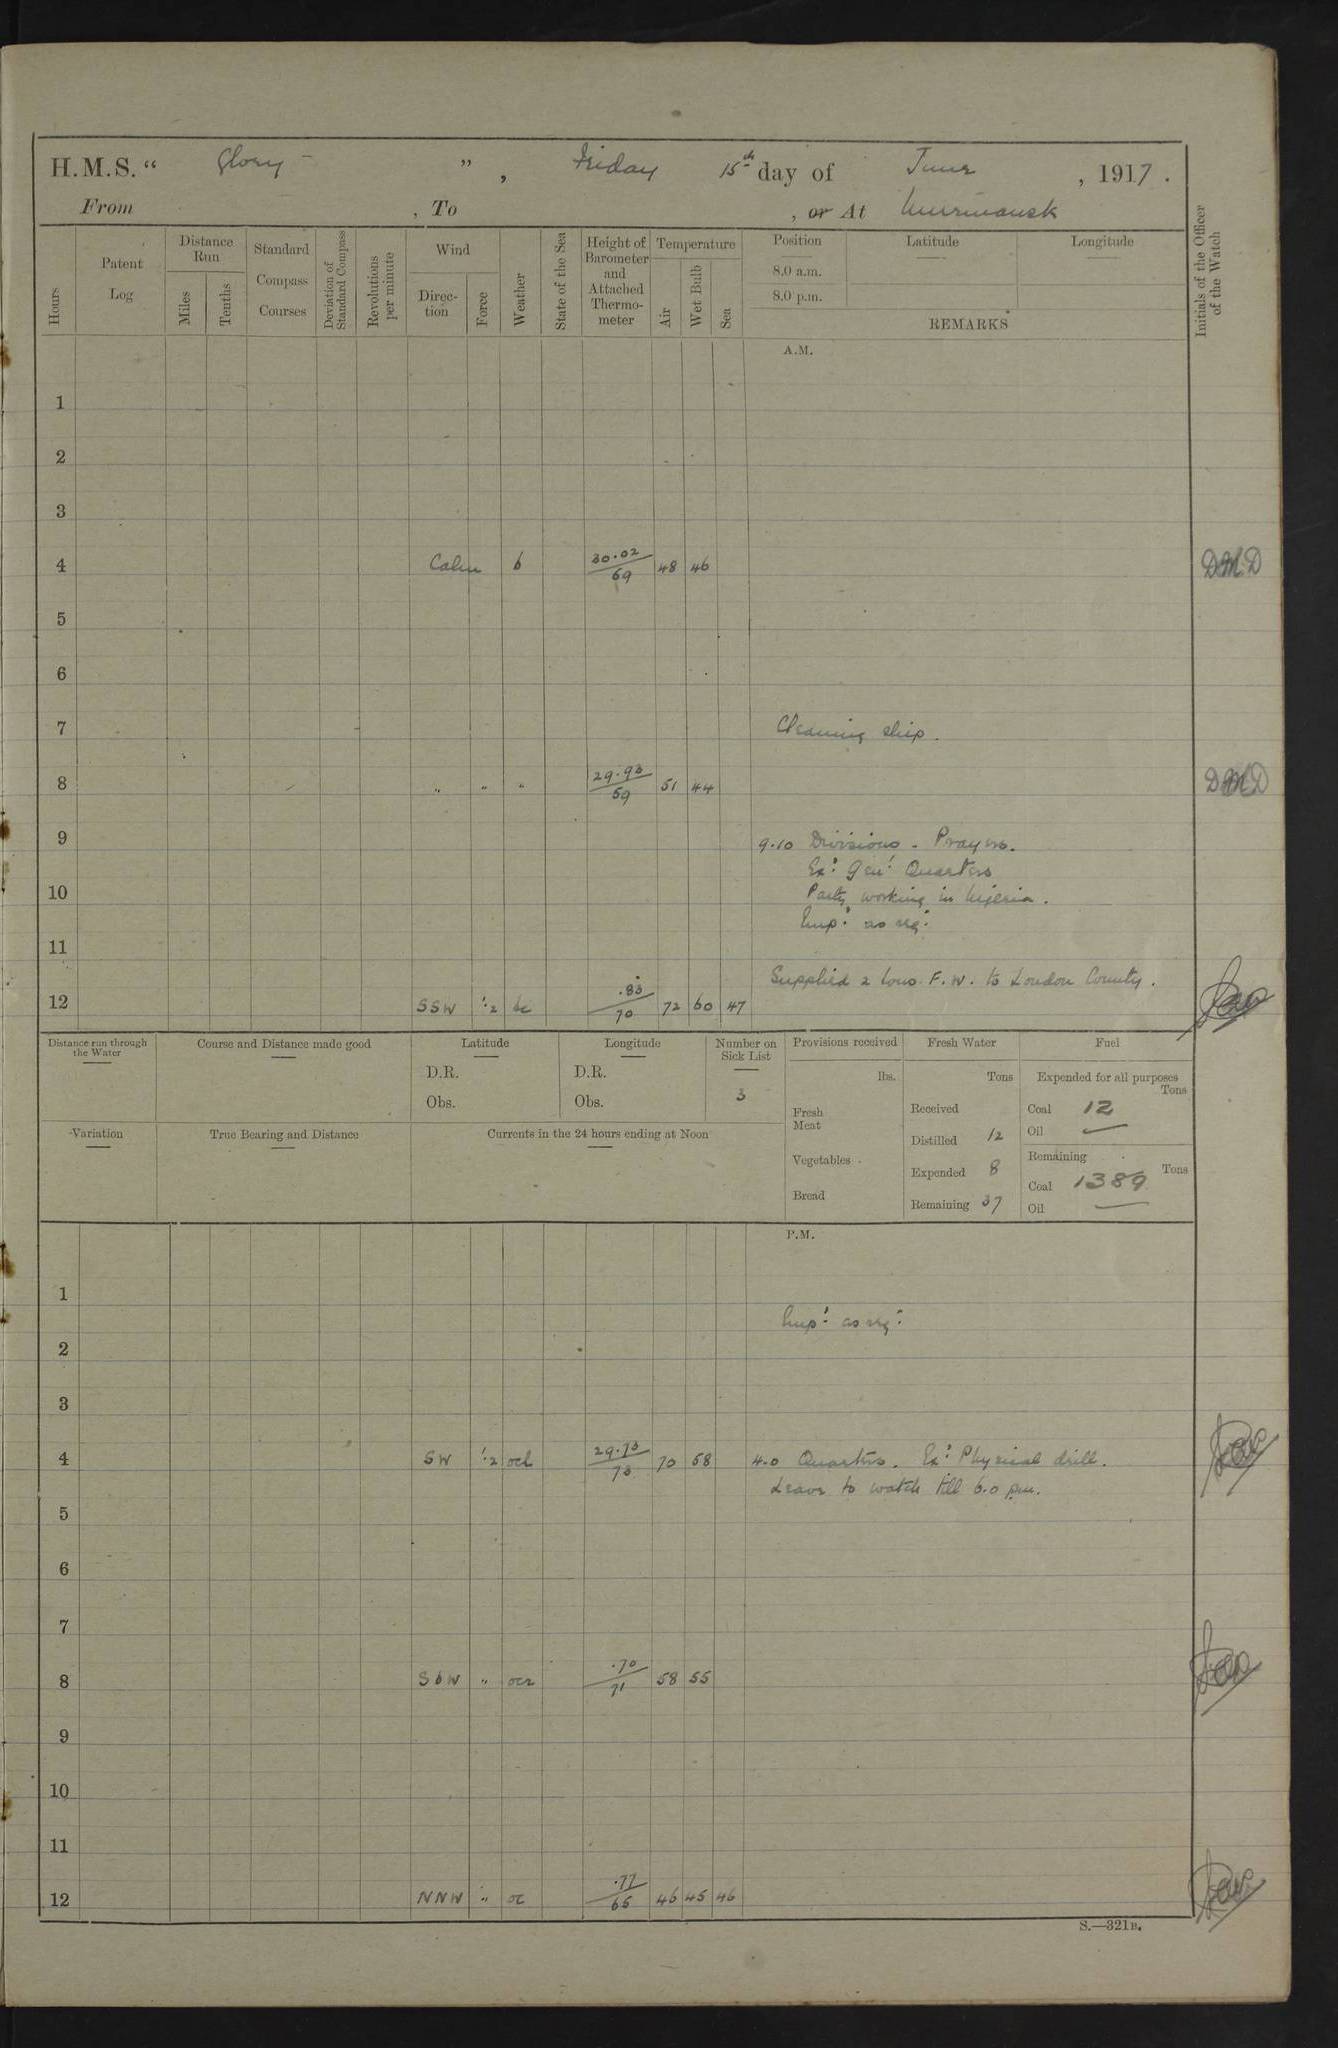 H.M.S. “ Glory - ” , Friday 15th day of June , 1917 .
From , To , or At Murmansk
Hours
Patent Log
Distance Run
Miles
Tenths
Standard Compass Courses
Deviation of Standard Compass
Revolutions per minute
Wind
Direc-tion
Force
Weather
State of the Sea
Height of Barometer and Attached Thermo-meter
Temperature
Air
Wet Bulb
Sea
Position
8.0 a.m.
8.0 p.m.
Latitude
Longitude
REMARKS
Initials of the Officer of the Watch
A.M.
1
2
3
4 Calm b 30.02/69 48 46 DMD
5
6
7 Cleaning ship.
8 " " " 29.93/59 51 44 DMD
9 9.10 Divisions - Prayers.
Ex: Gen: Quarters
10 Party working in Nigeria.
Emp: as req:
11
Supplied 2 tons F.W. to London County.
12 SSW 1.2 bc .83/70 72 60 47
Distance run through the Water
Course and Distance made good
Latitude
D.R.
Obs.
Longitude
D.R.
Obs.
Number on Sick List
3
Provisions received
lbs.
Fresh Meat
Vegetables
Bread
Fresh Water
Tons
Received
Distilled 12
Expended 8
Remaining 37
Fuel
Expended for all purposes
Tons
Coal 12
Oil —
Remaining
Tons
Coal 1389
Oil —
Variation
True Bearing and Distance
Currents in the 24 hours ending at Noon
P.M.
1
Emp: as req:
2
3
4 SW 1.2 ocl 29.73/73 70 58 4.0 Quarters. Ex: Physical drill.
Leave to watch till 6.0 pm.
5
6
7
8 SbW " ocr .70/71 58 55
9
10
11
12 NNW " oc .77/65 46 45 46
S.—321B.